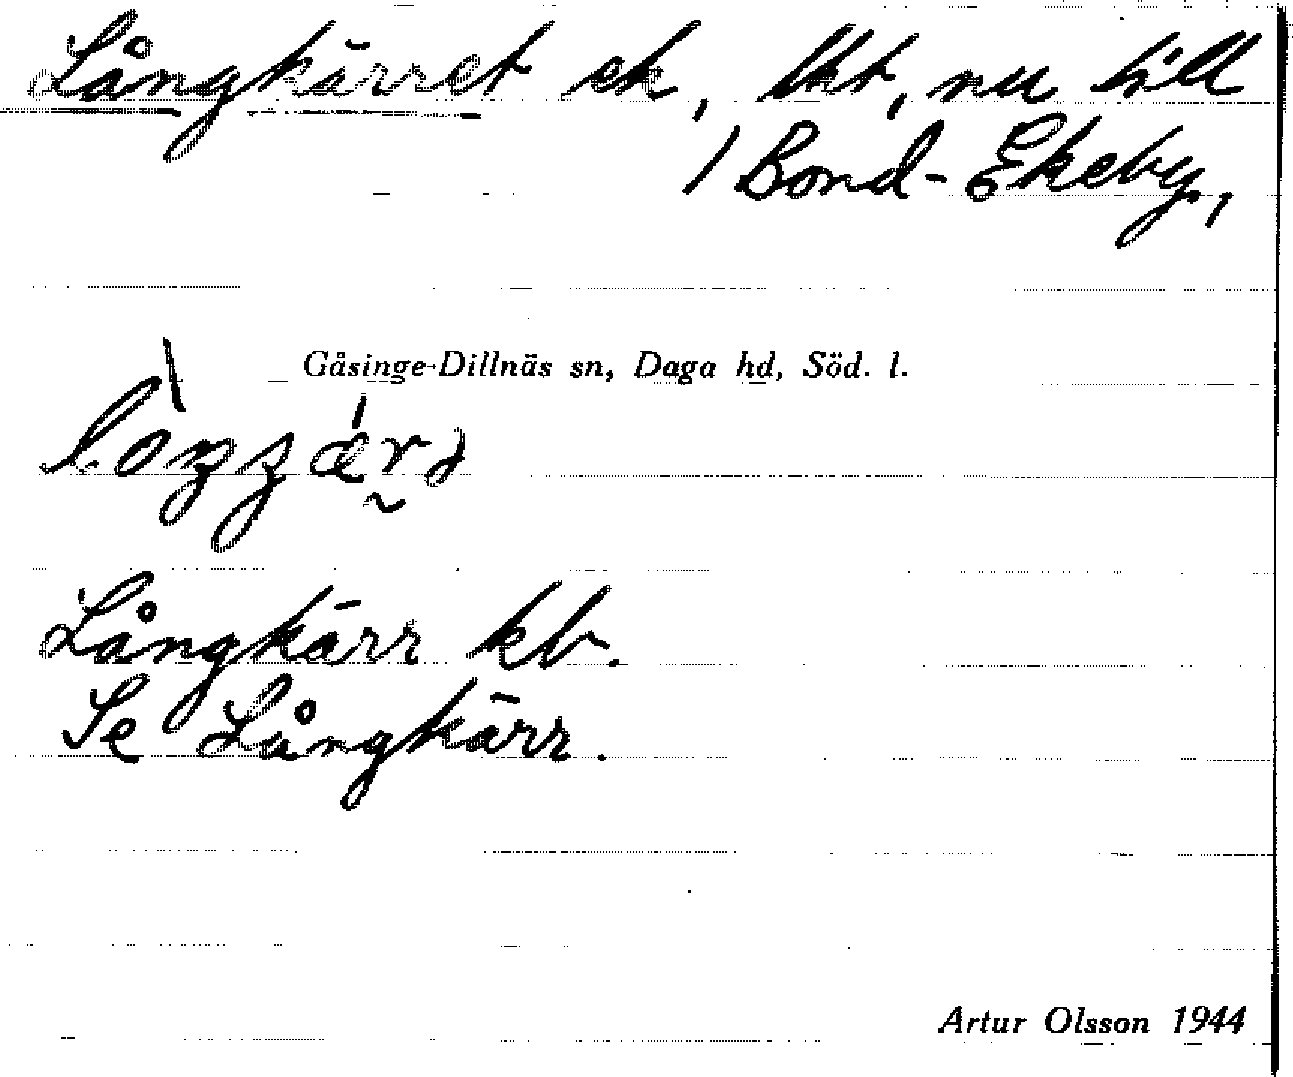 Långkärret ek, lht, nu till
/ Bond-Ekeby,
Gåsinge-Dillnäs sn, Daga hd, Söd. l.
Långkärr kb.
Se Långkärr.
Artur Olsson 1944